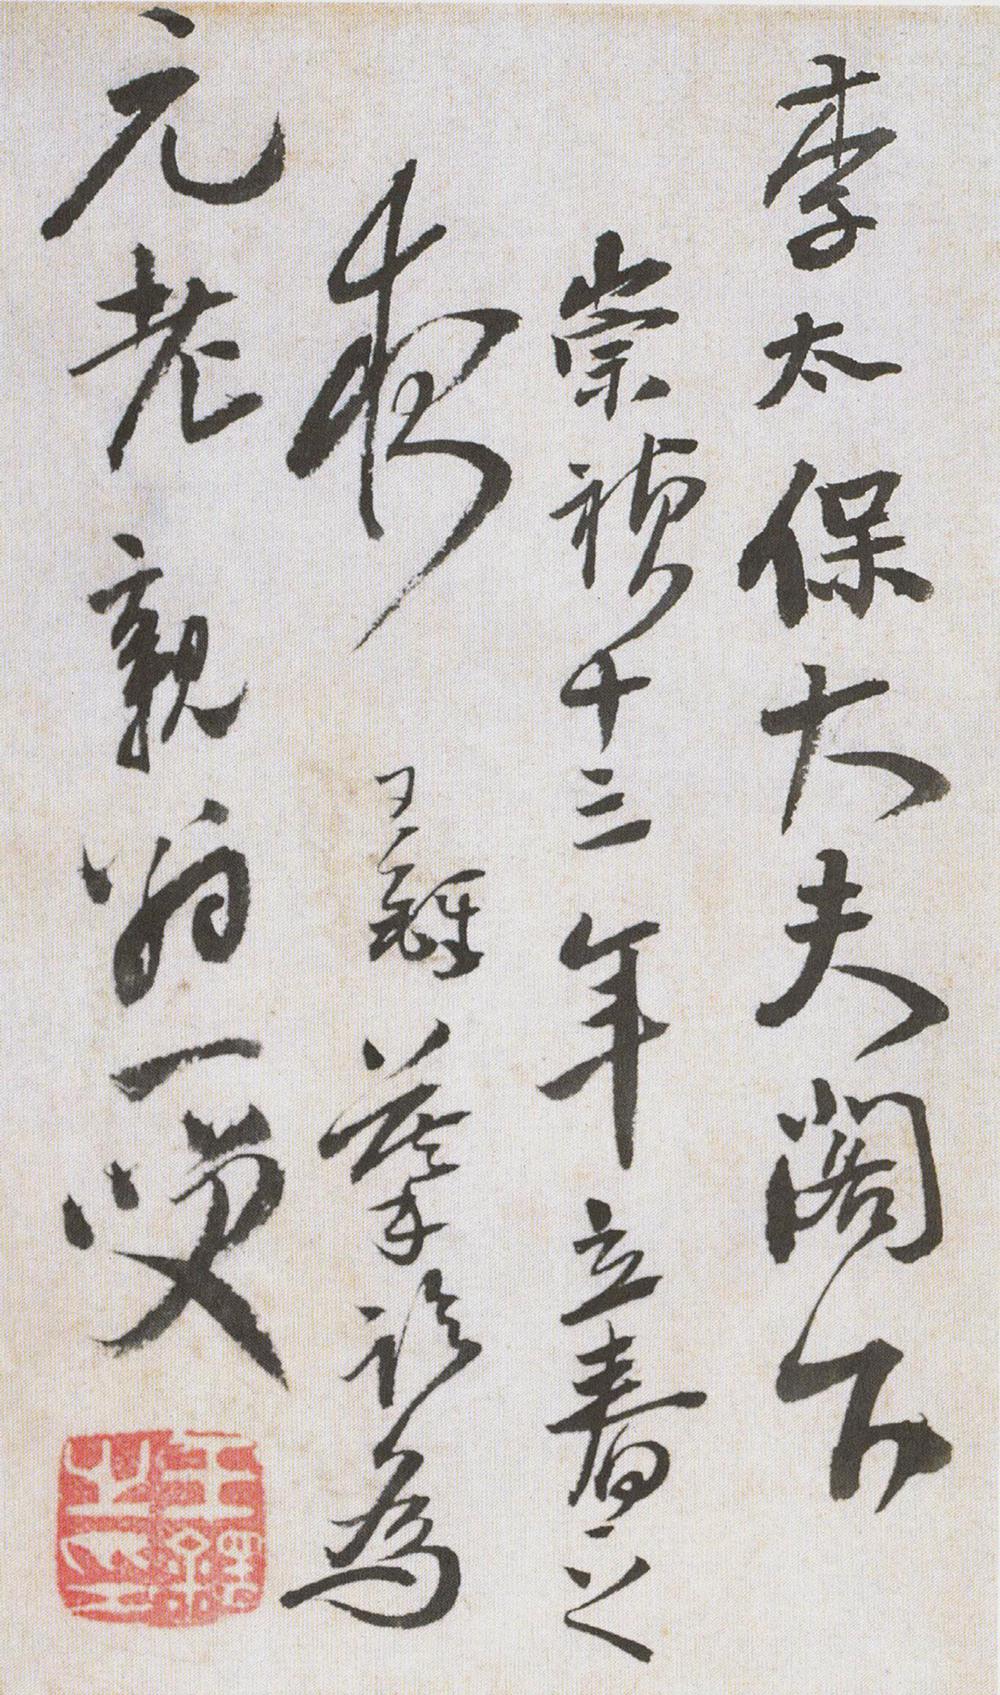 李太保大夫閣下
崇禎十三年立春之
夜 王鐸 摹 為
元老親翁一笑
王鐸之印